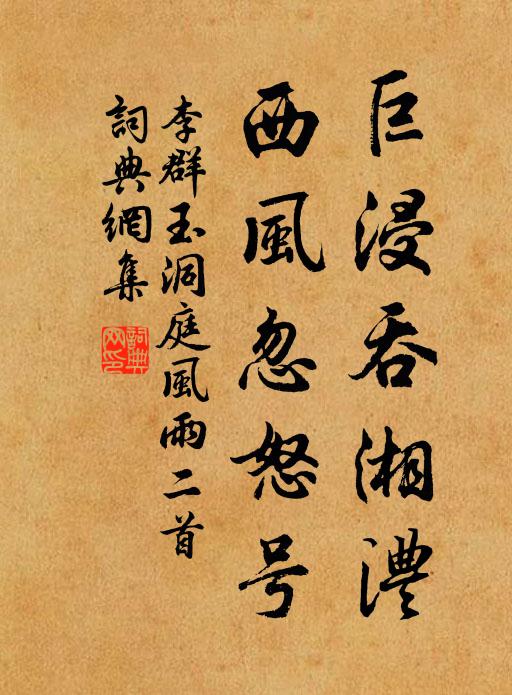 巨浸吞湘澧
西風忽怒号
李群玉洞庭風雨二首
詞典網集
詞典网印